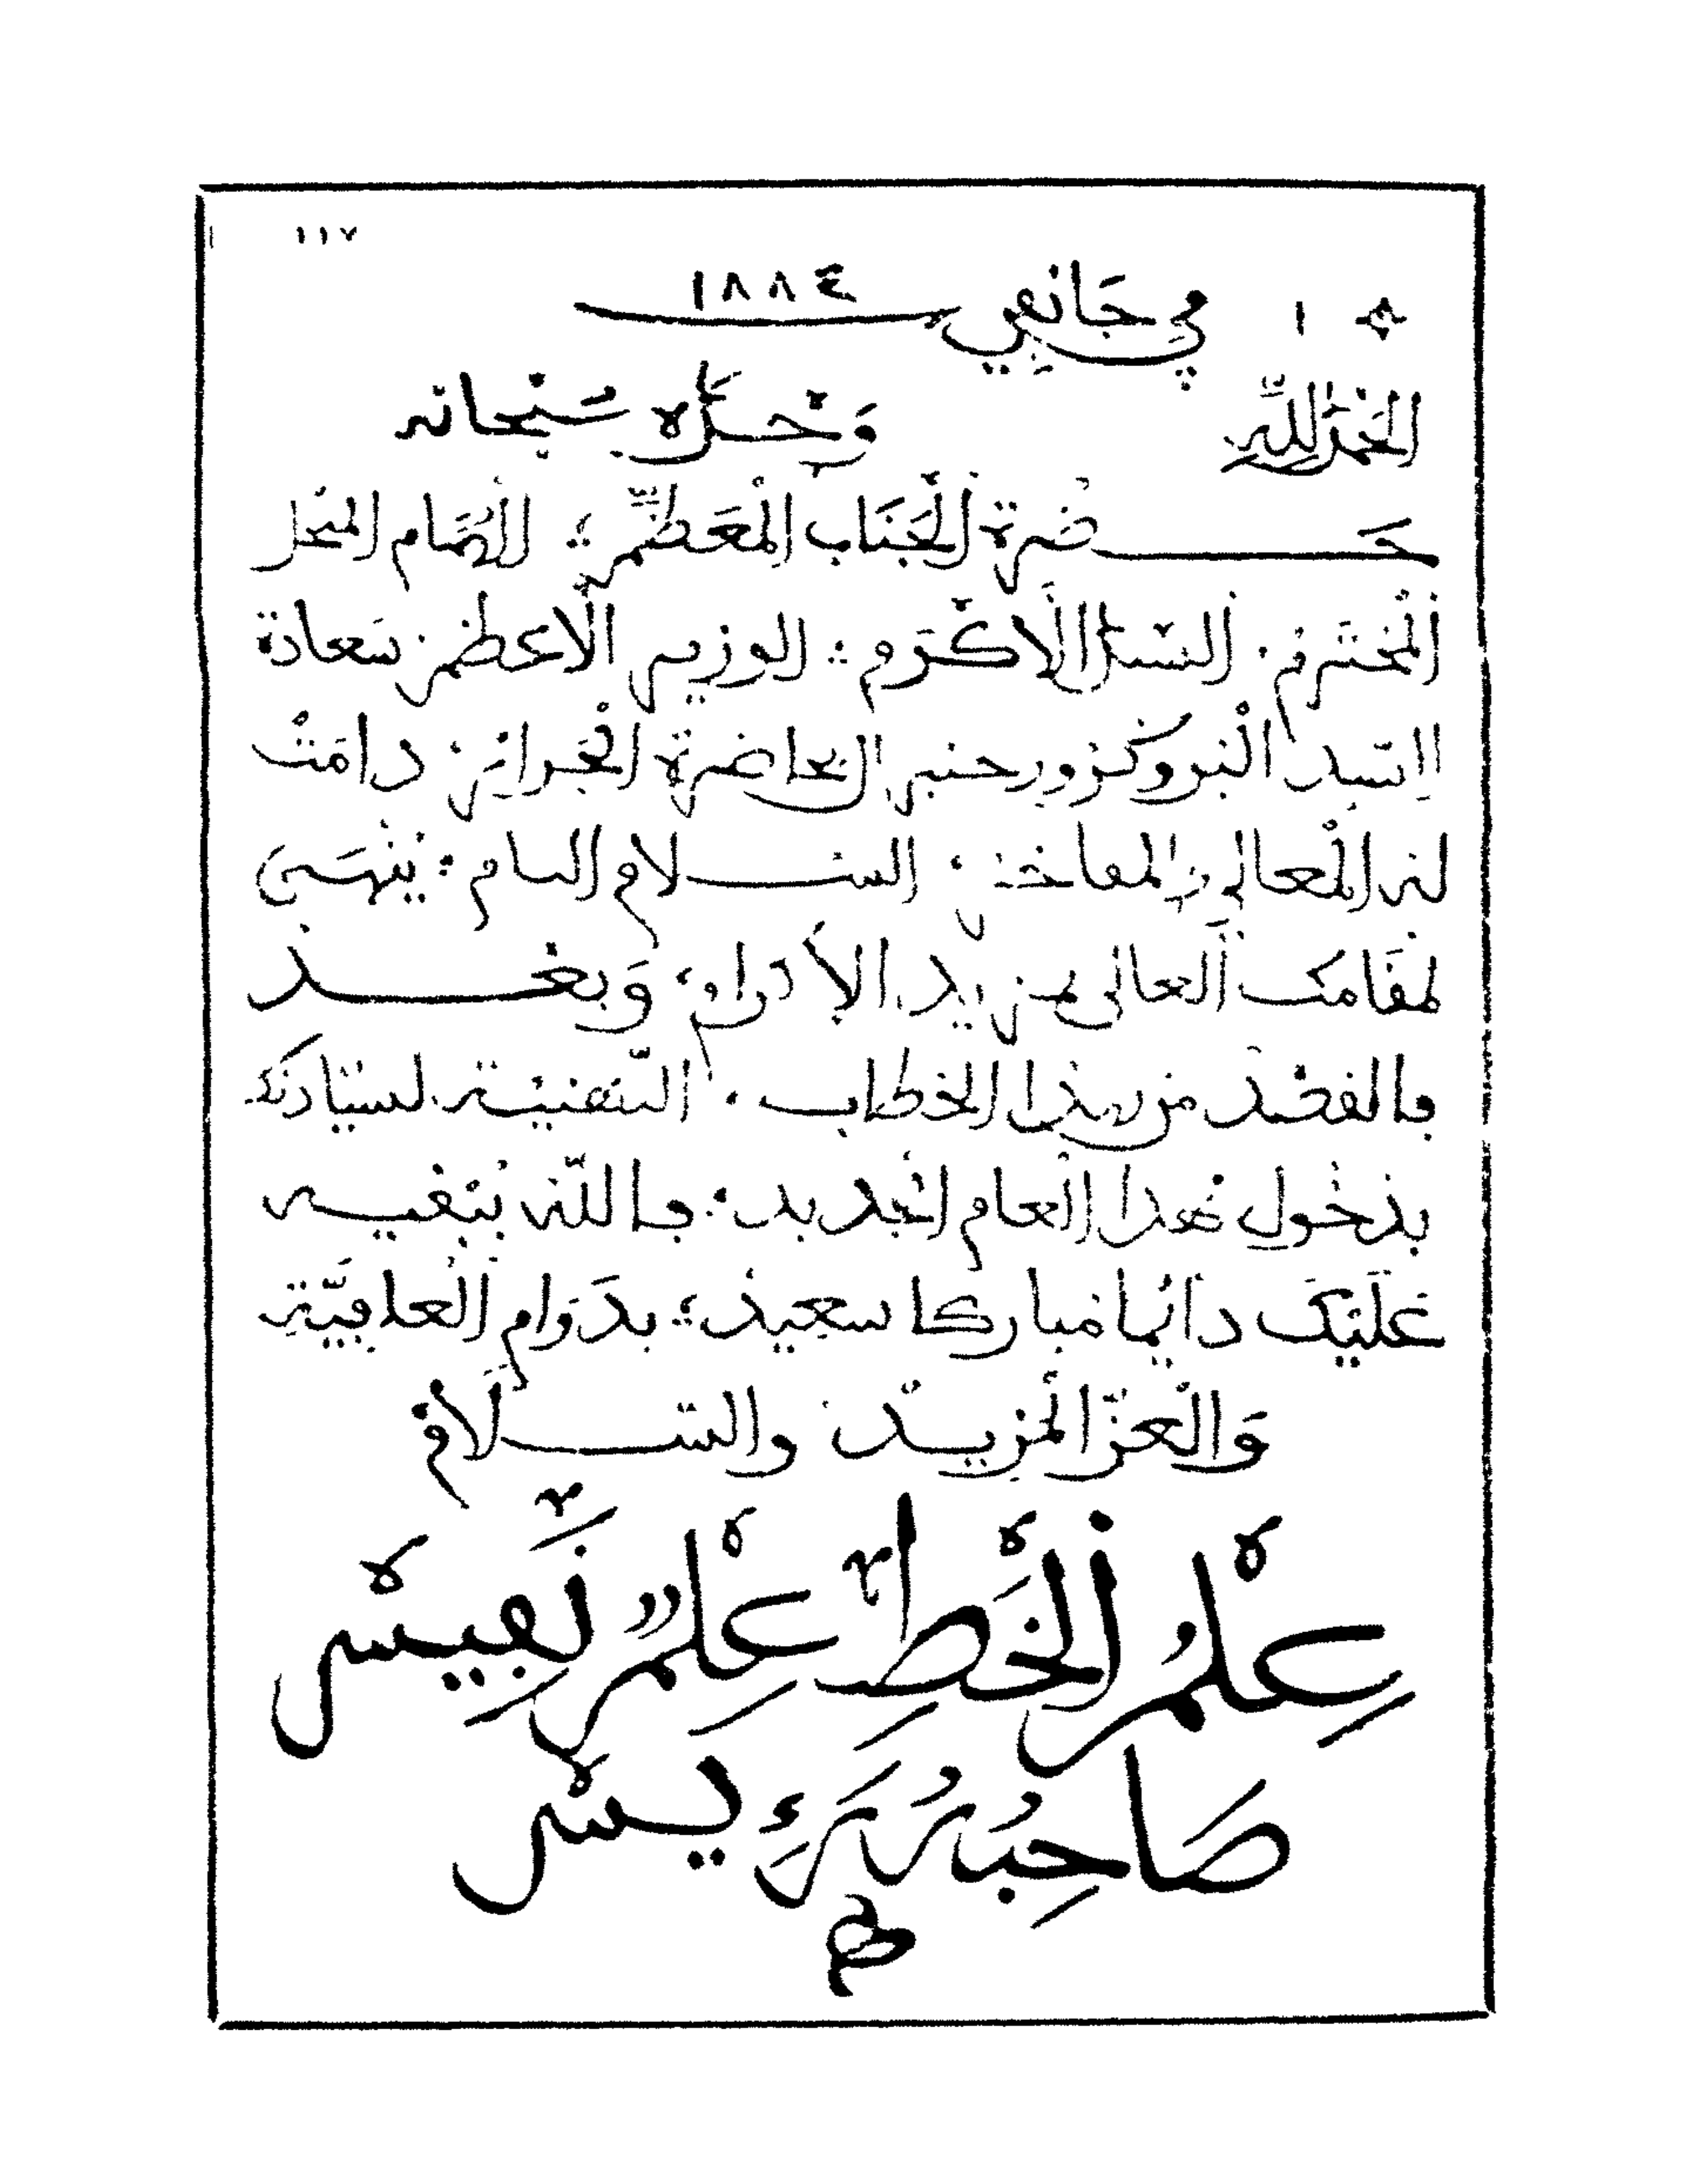 ١١٧
١ في جانفي ١٨٨٤
الحَمْدُ لِلَّهِ وَحْدَهُ سُبْحَانه
حَضرة الْجَنَاب الْمُعَظَّم؛ الهُمَام المبجل
الْمُحْتَرَم. السيد الأكْرَم؛ الوزير الأعظم. سَعادة
السيد البروكرور جنير. بحاضرة الْجَزائر؛ دامَتْ
له الْمعالي والمفاخر؛ السلام التام؛ يُنْهَى
لمقَامك العالي بمزيد الإكرام؛ وَبعْد
فالقصْد من هذا الخطاب، التّهنيئة لسيادتك
بدخُول هذا العام الْجديد؛ فالله يُبْقيه
عَلَيْكَ دائما مُباركا سعِيد؛ بدَوام الْعافِيَّةِ
وَالْعزّ المزيد والسَّلَام
عِلْمُ الْخَطِّ عِلْمٌ نَّفِيسْ
صَاحِبُهُ رَءِيسْ